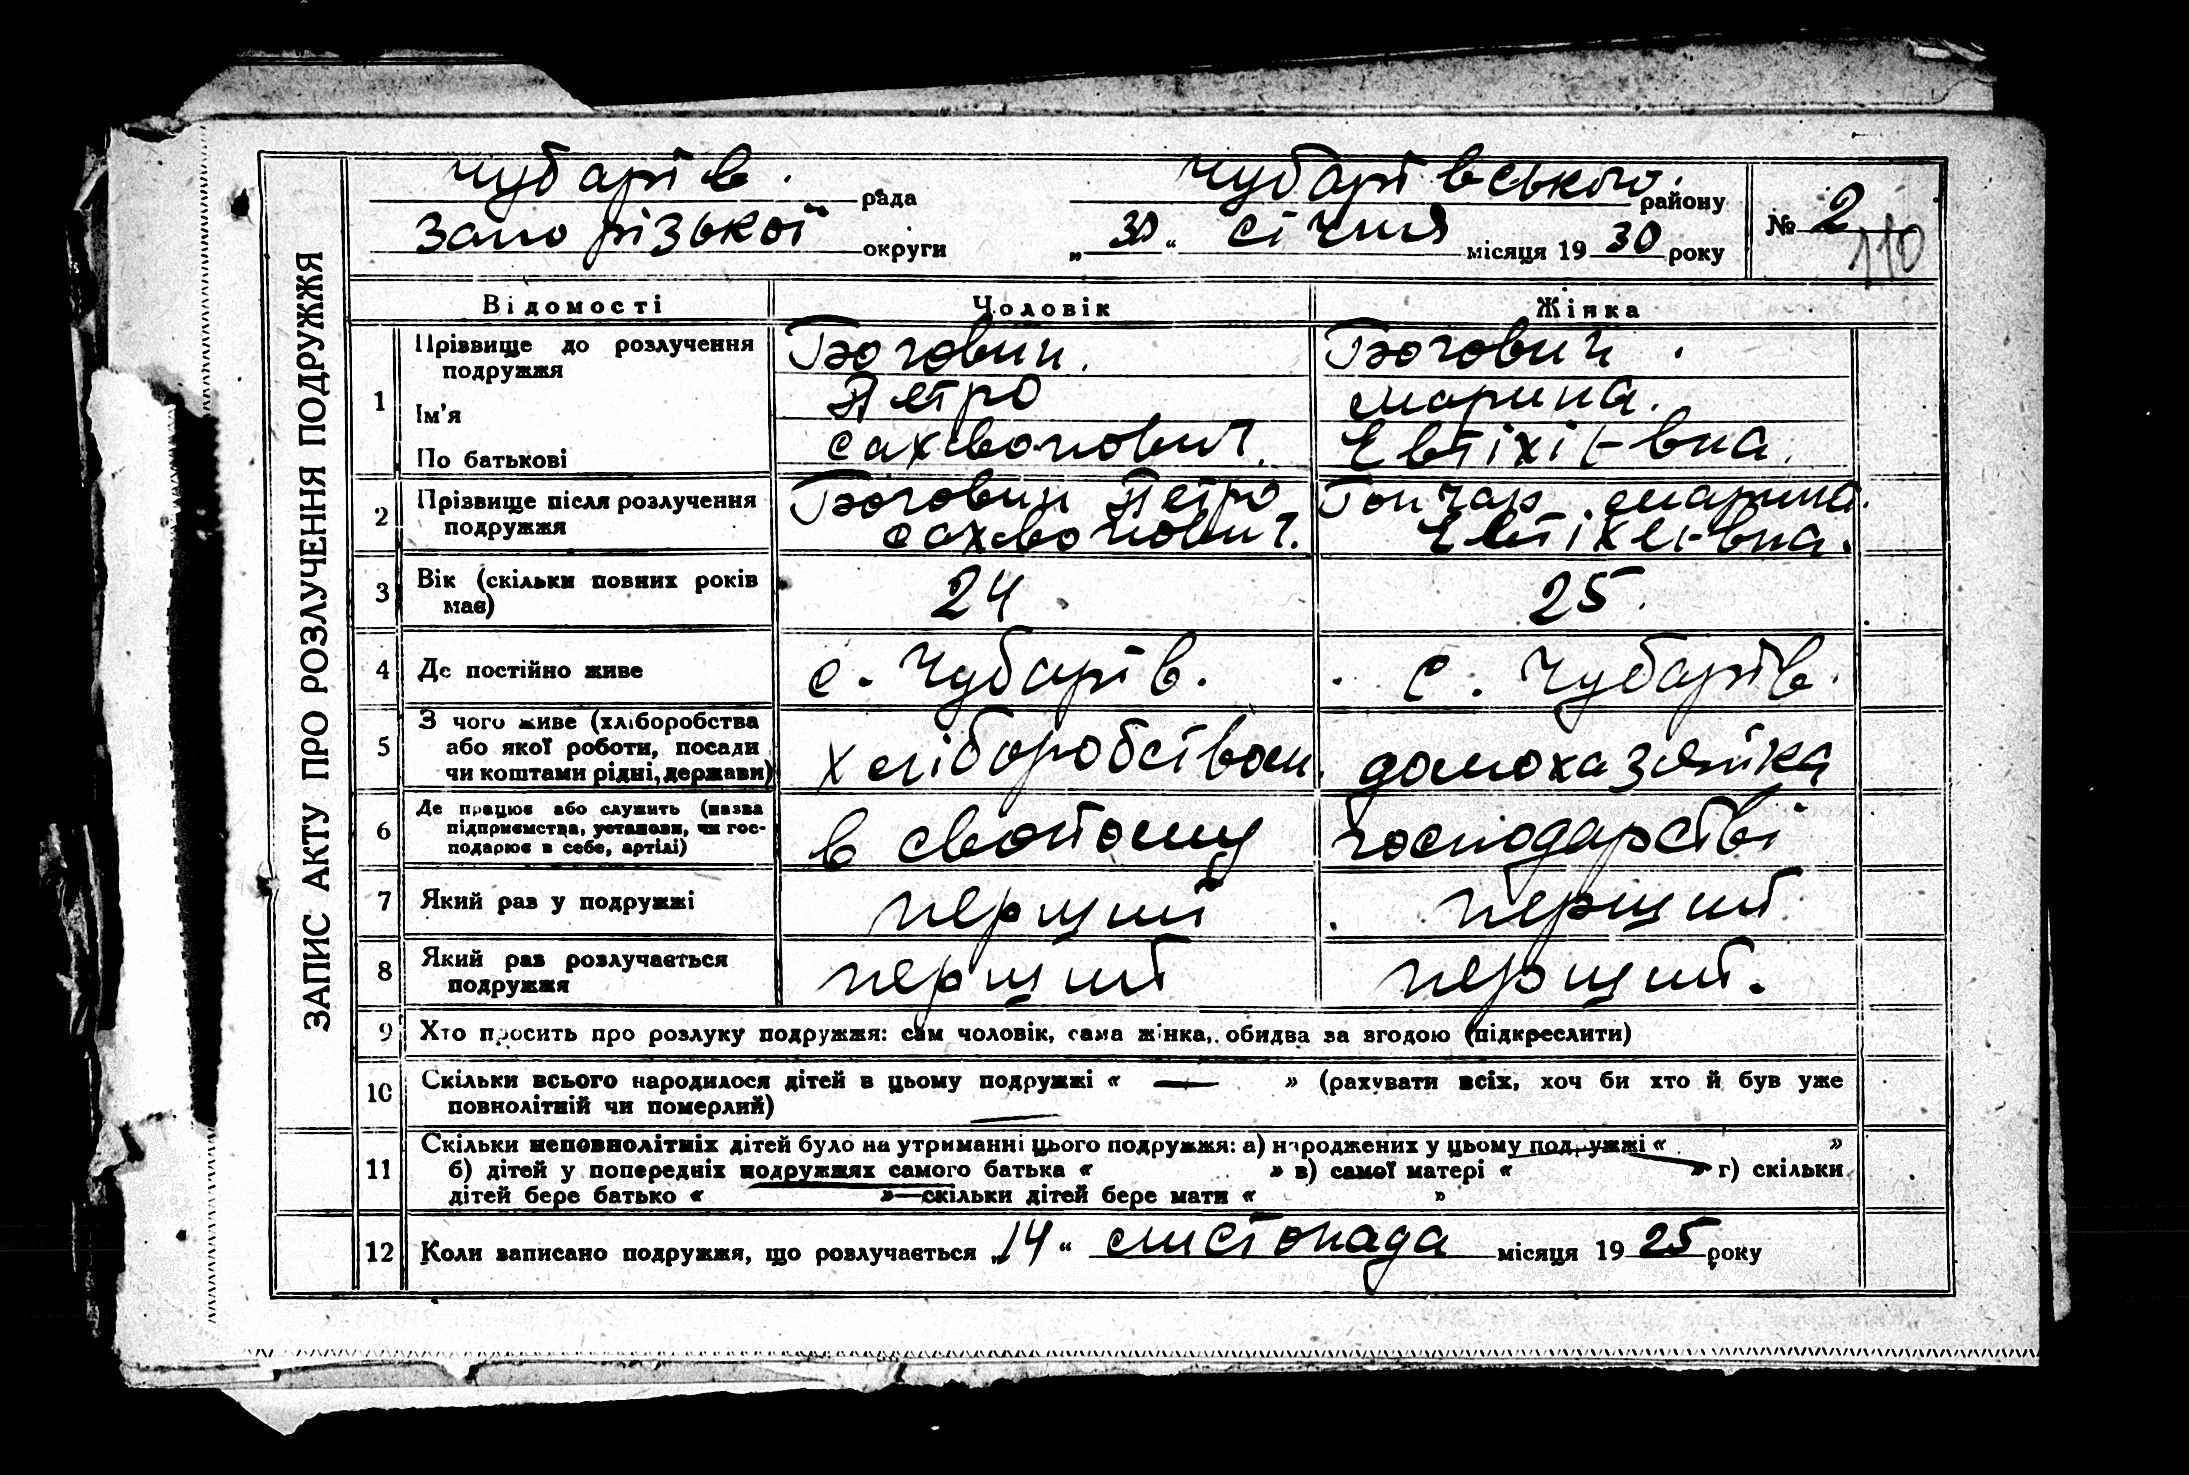 ЗАПИС АКТУ ПРО РОЗЛУЧЕННЯ ПОДРУЖЖЯ
Чубарів. рада Чубарівського. району № 2
Запорізької округи „30“ січня місяця 1930 року 110
Відомості Чоловік Жінка
1 Прізвище до розлучення подружжя Боговин. Богович.
Ім'я Петро Марина.
По батькові Сахвонович. Євтіхієвна.
2 Прізвище після розлучення подружжя Боговин Петро Сахвонович. Гончар Марина Євтіхеєвна.
3 Вік (скільки повних років має) 24 25.
4 Де постійно живе с. Чубарів. с. Чубарів.
5 З чого живе (хліборобства або якої роботи, посади чи коштами рідні, держави) хліборобством. домохазяйка
6 Де працює або служить (назва підприємства, установи, чи господарює в себе, артілі) в свойому господарстві
7 Який раз у подружжі перший перший
8 Який раз розлучається подружжя перший перший.
9 Хто просить про розлуку подружжя: сам чоловік, сама жінка, обидва за згодою (підкреслити)
10 Скільки всього народилося дітей в цьому подружжі « — » (рахувати всіх, хоч би хто й був уже
повнолітній чи померлий)
11 Скільки неповнолітніх дітей було на утриманні цього подружжя: а) народжених у цьому подружжі « »
б) дітей у попередніх подружжях самого батька « » в) самої матері « » г) скільки
дітей бере батько « » скільки дітей бере мати « »
12 Коли записано подружжя, що розлучається „14“ листопада місяця 1925 року